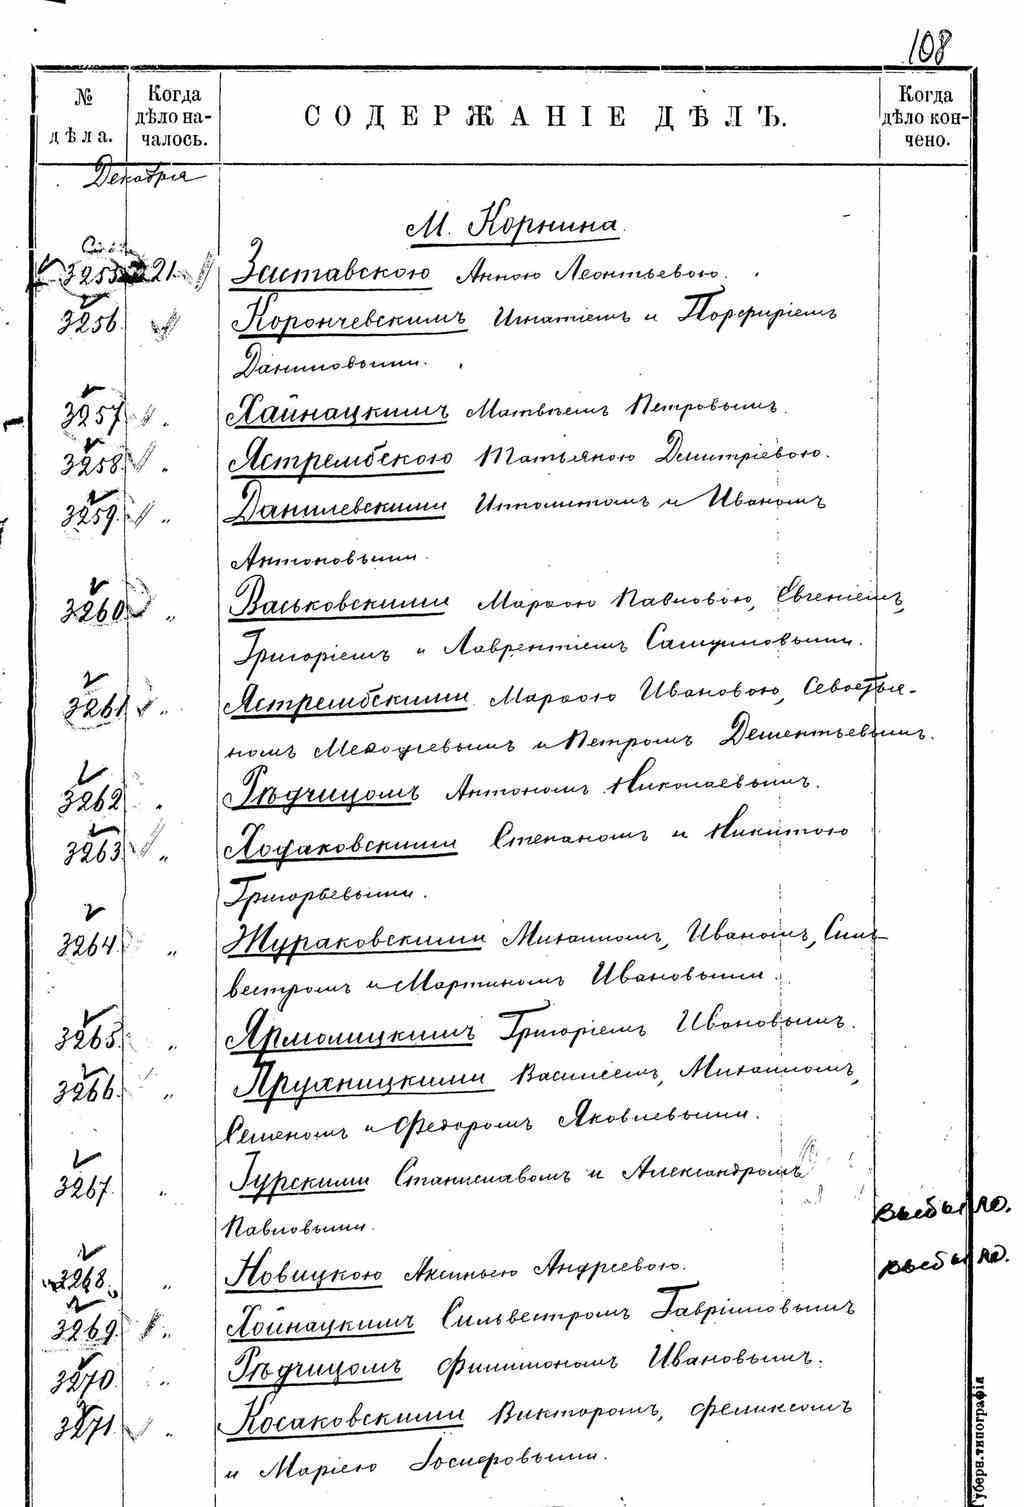 108
№ дѣла.
Когда дѣло началось.
СОДЕРЖАНІЕ ДѢЛЪ.
Когда дѣло кончено.
Декабря
М. Корнина.
3255 21 Заставскою Анною Леонтьевою.
3256. Корончевскимъ Игнатіемъ и Порфиріемъ
Даниловыми.
3257 „ Хайнацкимъ Матвѣемъ Петровымъ.
3258. „ Ястрембскою Татьяною Дмитріевою.
3259. „ Данилевскими Ипполитомъ и Иваномъ
Антоновыми.
3260 „ Васьковскими Марѳою Павловою, Евгеніемъ,
Григоріемъ и Лаврентіемъ Самуиловыми.
3261 „ Ястрембскими Марѳою Ивановою, Севастья-
номъ Меѳодіевымъ и Петромъ Дементьевымъ.
3262 „ Рѣдчицомъ Антономъ Николаевымъ.
3263. „ Ходаковскими Степаномъ и Никитою
Григорьевыми.
3264. „ Жураковскими Михаиломъ, Иваномъ, Силь-
вестромъ и Мартиномъ Ивановыми.
3265. „ Ярмолицкимъ Григоріемъ Ивановымъ.
3266. „ Прухницкими Василіемъ, Михаиломъ,
Семеномъ и Федоромъ Яковлевыми.
3267. „ Гурскими Станиславомъ и Александромъ
Павловыми.
выбыло.
3268. „ Новицкою Аксиньею Андреевою.
выбыло.
3269. „ Хойнацкимъ Сильвестромъ Гавріиловымъ
3270. „ Рѣдчицомъ Филимономъ Ивановымъ.
3271. „ Косаковскими Викторомъ, Феликсомъ
и Маріею Іосифовыми.
Губерн. типографія